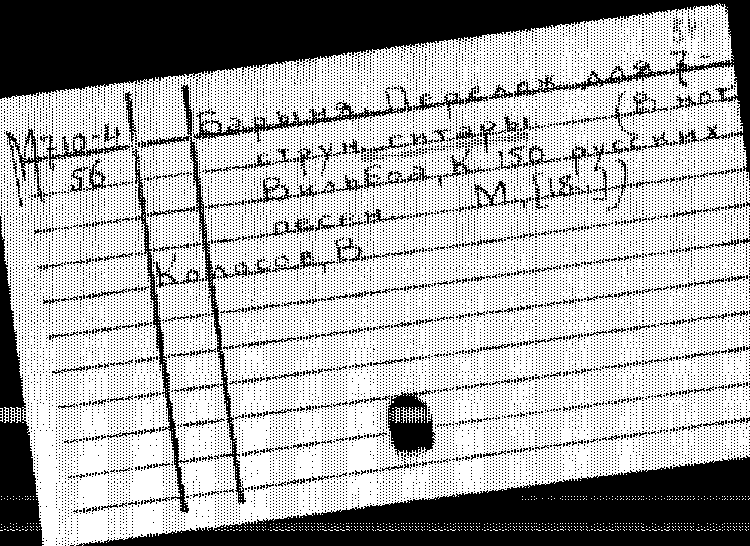 М710-4
56
Барыня. Перелож. для 7-
струн. гитары (В нот
Вильбоа, К. 150 русских
песен. М., [18..])
Колосов, В.